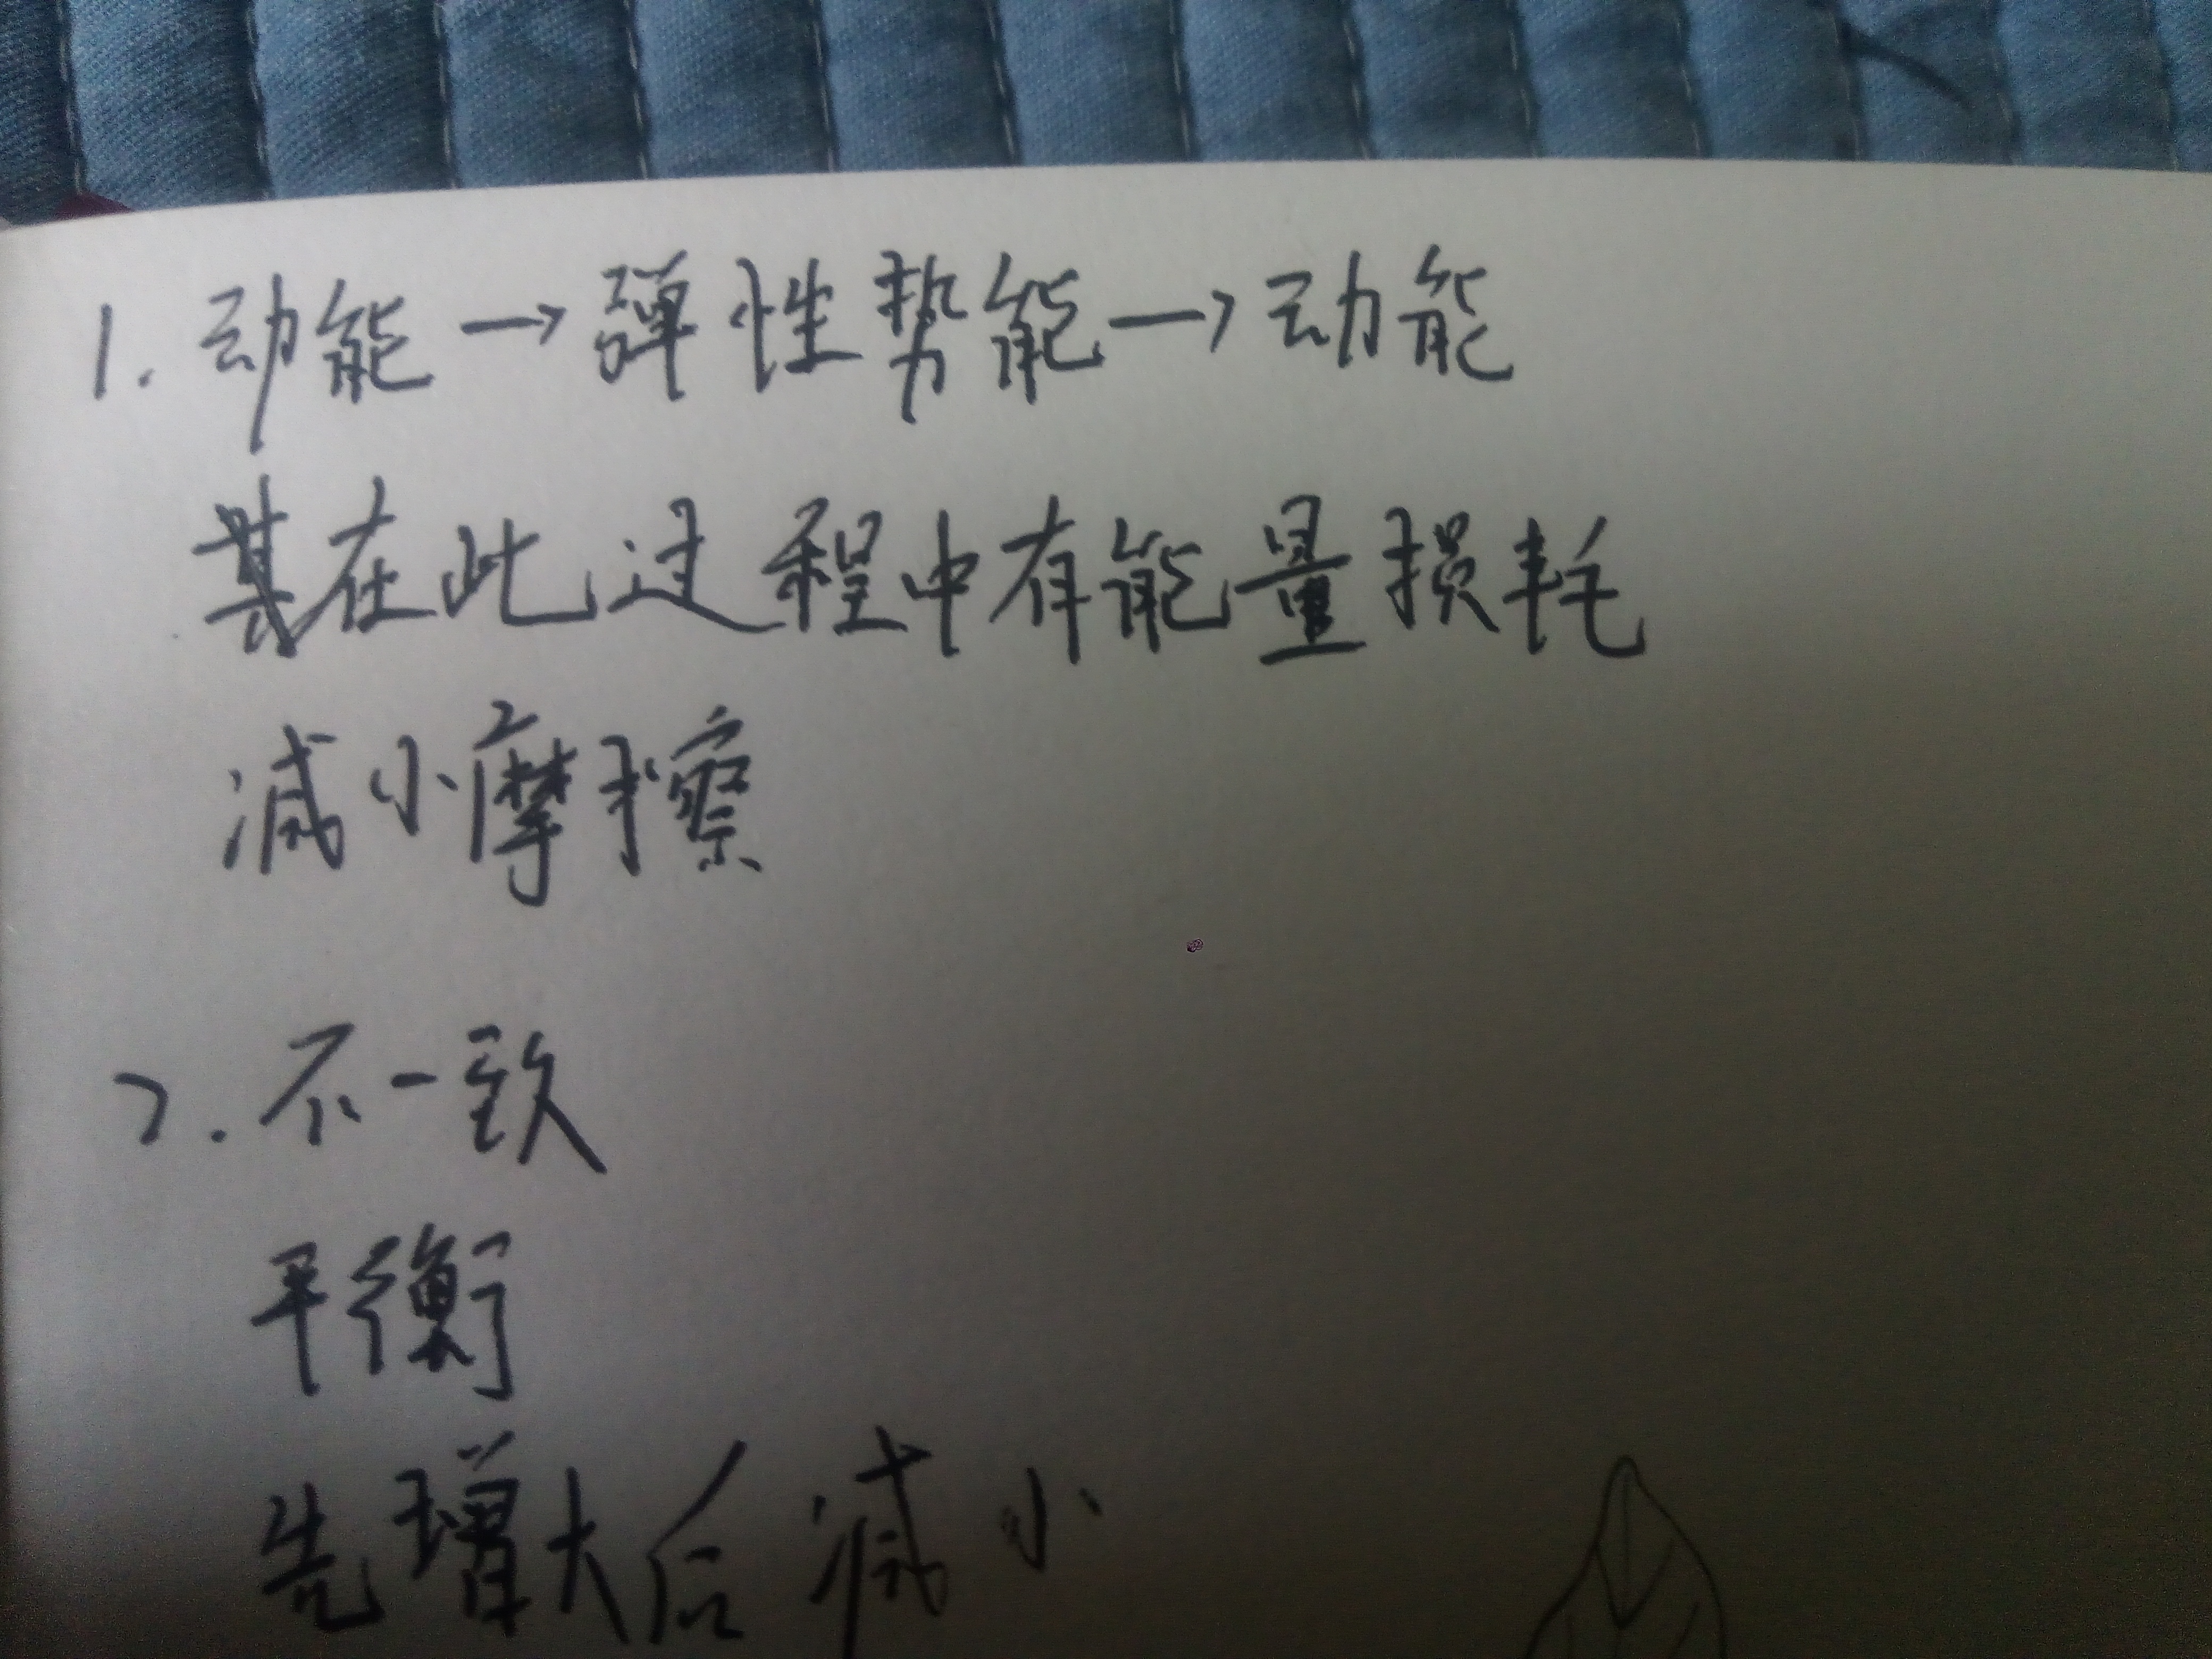 1. 动能→弹性势能→动能
其在此过程中有能量损耗
减小摩擦
2. 不一致
平衡
先增大后减小